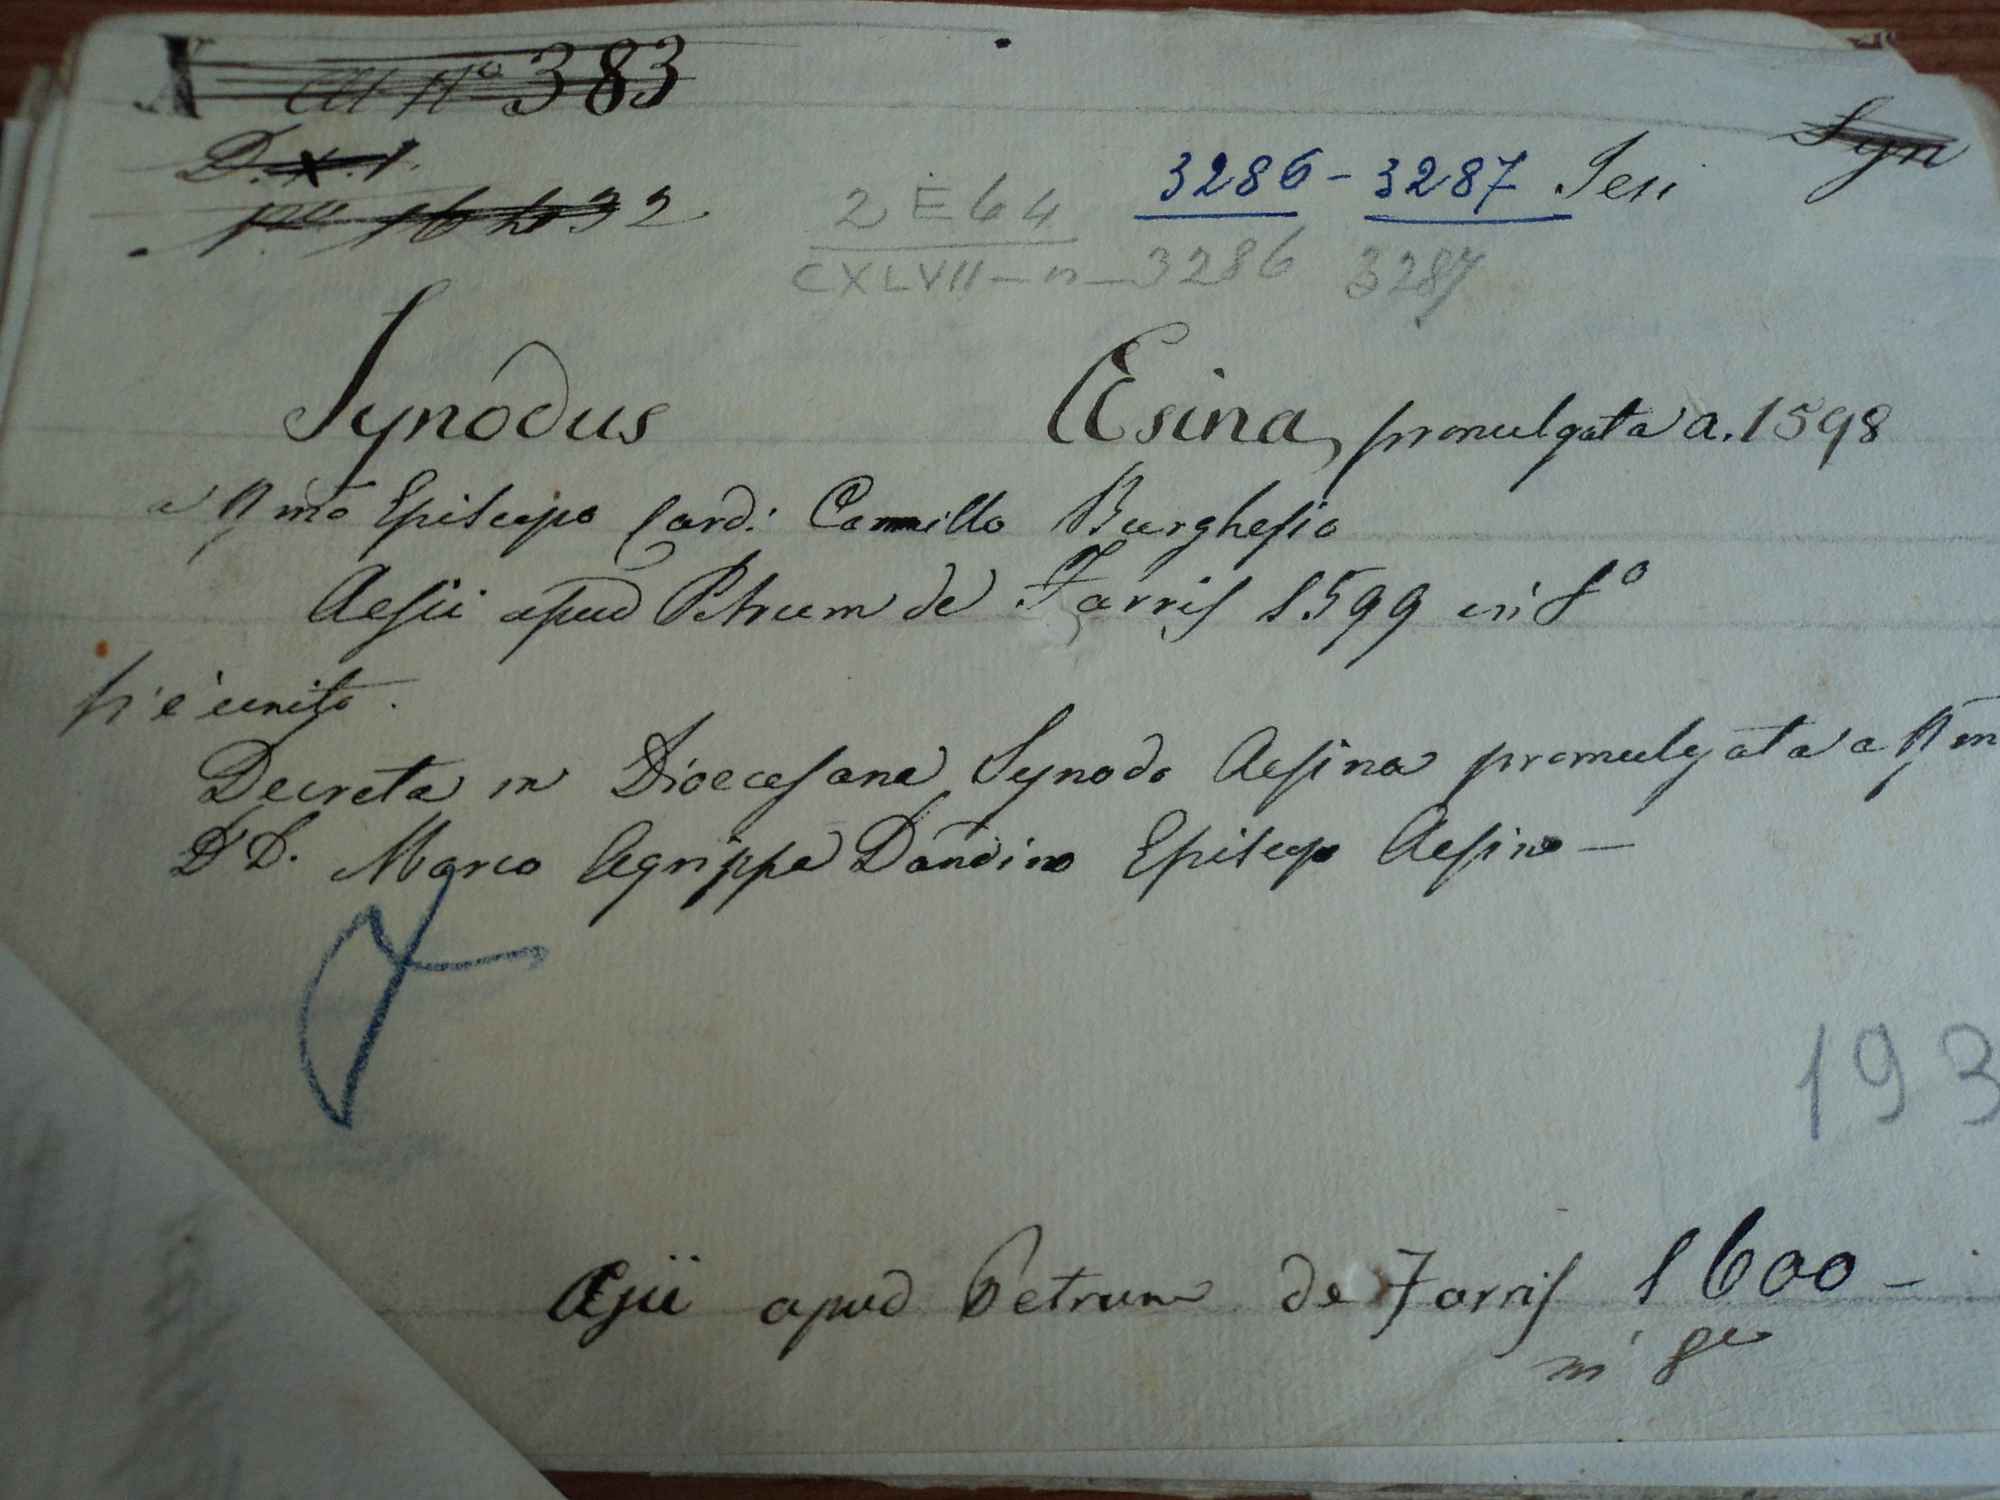 al N.º 383
D. x. 1.
Syn
3286 - 3287 Jesi
2 E 64
CXLVII - n - 3286 3287
Synodus Æsina, promulgata a. 1598
a Rmo Episcopo Card: Camillo Burghesio
Aesii apud Petrum de Farris 1599 in 8º
Vi è unito.
Decreta in Dioecesana Synodo Aesina promulgata a Rm
DD. Marco Agrippa Dandino Episcopo Aesino —
193
Æsii apud Petrum de Farris 1600 —
in 8º